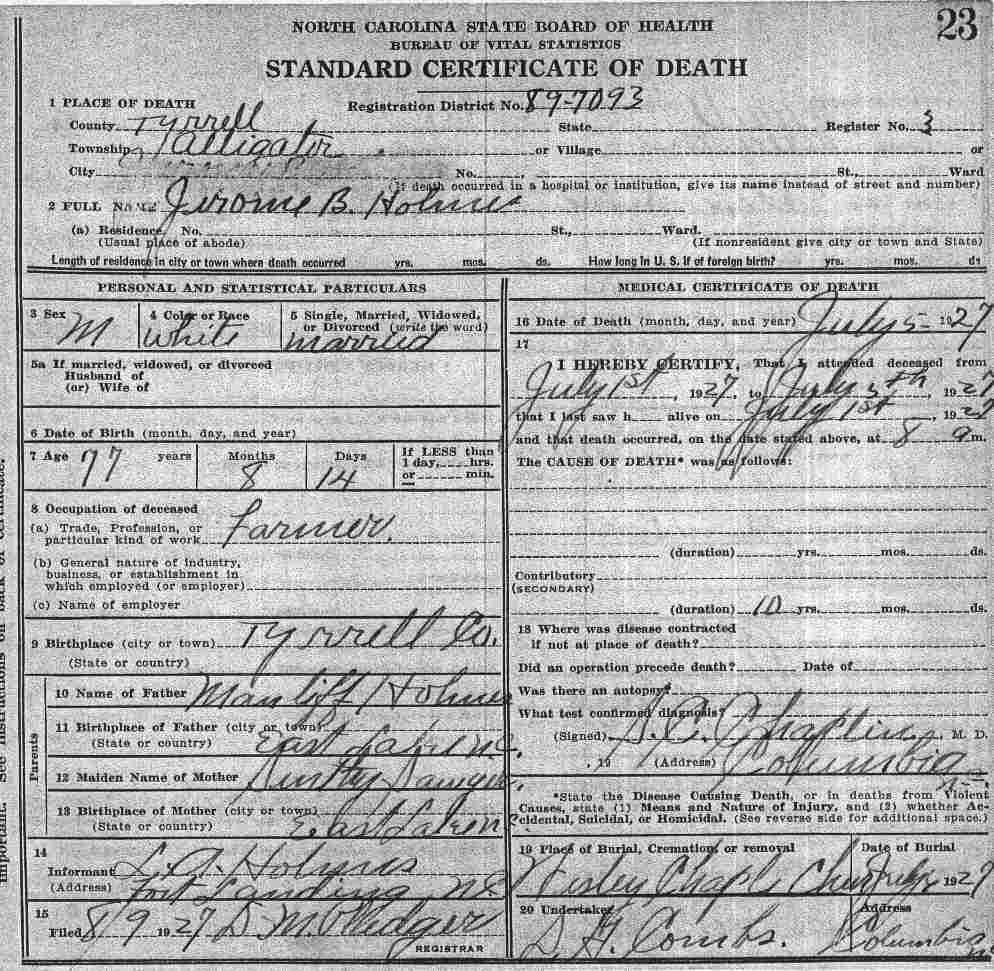 23
NORTH CAROLINA STATE BOARD OF HEALTH
BUREAU OF VITAL STATISTICS
STANDARD CERTIFICATE OF DEATH
1 PLACE OF DEATH Registration District No. 89-7093
County Tyrrell State Register No. 3
Township Alligator or Village or
City No. St., Ward
(If death occurred in a hospital or institution, give its name instead of street and number)
2 FULL NAME Jerome B. Holmes
(a) Residence, No. St., Ward.
(Usual place of abode) (If nonresident give city or town and State)
Length of residence in city or town where death occurred yrs. mos. ds. How long in U. S. if of foreign birth? yrs. mos. ds
PERSONAL AND STATISTICAL PARTICULARS
3 Sex M
4 Color or Race White
5 Single, Married, Widowed,
or Divorced (write the word)
married
5a If married, widowed, or divorced
Husband of
(or) Wife of
6 Date of Birth (month, day, and year)
7 Age 77 years Months 8 Days 14 If LESS than
1 day, hrs.
or min.
8 Occupation of deceased
(a) Trade, Profession, or
particular kind of work Farmer.
(b) General nature of industry,
business, or establishment in
which employed (or employer)
(c) Name of employer
9 Birthplace (city or town) Tyrrell Co.
(State or country)
Parents
10 Name of Father Manliff Holmes
11 Birthplace of Father (city or town)
(State or country) East Lake N.C.
12 Maiden Name of Mother
13 Birthplace of Mother (city or town)
(State or country) East Lake N
14
Informant L. A. Holmes
(Address) Fort Landing N.C.
15
Filed 8/9 1927 D. M. Pledger
REGISTRAR
MEDICAL CERTIFICATE OF DEATH
16 Date of Death (month, day, and year) July 5- 1927
17
I HEREBY CERTIFY, That I attended deceased from
July 1st, 1927, to July 5th, 1927
that I last saw h alive on July 1st, 1927
and that death occurred, on the date stated above, at 8 a m.
The CAUSE OF DEATH* was as follows:
(duration) yrs. mos. ds.
Contributory
(SECONDARY)
(duration) 10 yrs. mos. ds.
18 Where was disease contracted
if not at place of death?
Did an operation precede death? Date of
Was there an autopsy?
What test confirmed diagnosis?
(Signed) Chaplin, M. D.
, 19 (Address) Columbia
*State the Disease Causing Death, or in deaths from Violent
Causes, state (1) Means and Nature of Injury, and (2) whether Ac-
cidental, Suicidal, or Homicidal. (See reverse side for additional space.)
19 Place of Burial, Cremation, or removal Date of Burial
Wesley Chapl Chur July 1927
20 Undertaker Address
Combs. Columbia
important. See instructions on back of certificate.